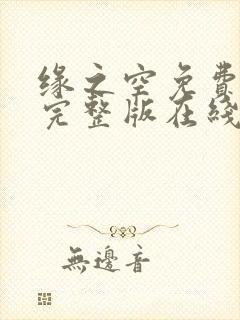 缘之空免費
完整版在綫
無邊音